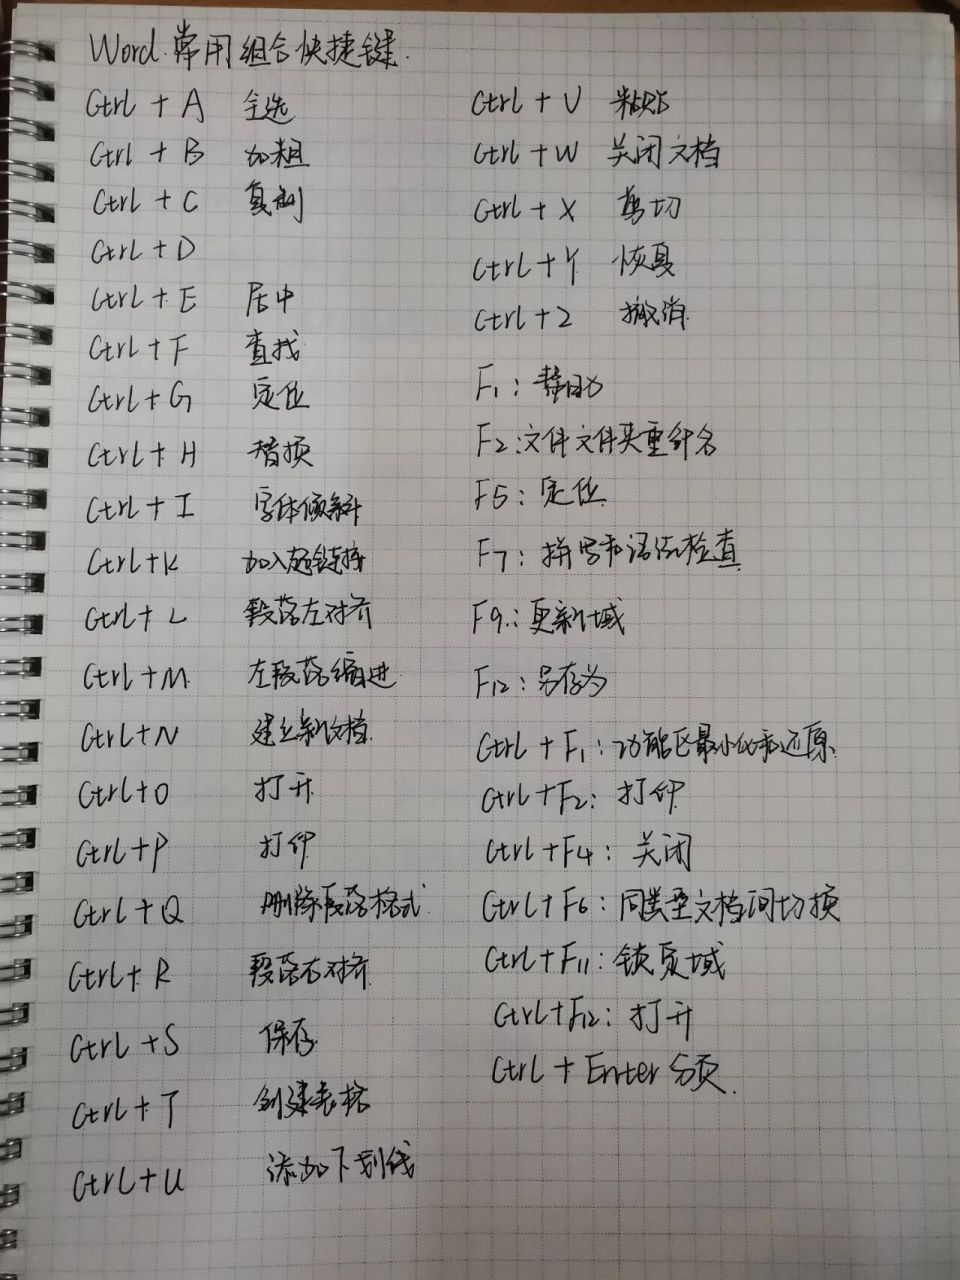 Word 常用组合快捷键.
Ctrl + A 全选
Ctrl + B 加粗
Ctrl + C 复制
Ctrl + D
Ctrl + E 居中
Ctrl + F 查找
Ctrl + G 定位
Ctrl + H 替换
Ctrl + I 字体倾斜
Ctrl + K 加入超链接
Ctrl + L 段落左对齐
Ctrl + M 左段落缩进
Ctrl + N 建立新文档
Ctrl + O 打开
Ctrl + P 打印
Ctrl + Q 删除段落格式
Ctrl + R 段落右对齐
Ctrl + S 保存
Ctrl + T 创建表格
Ctrl + U 添加下划线
Ctrl + V 粘贴
Ctrl + W 关闭文档
Ctrl + X 剪切
Ctrl + Y 恢复
Ctrl + Z 撤消
F1：帮助
F2：文件文件夹重命名
F5：定位
F7：拼写和语法检查
F9：更新域
F12：另存为
Ctrl + F1：功能区最小化和还原
Ctrl + F2：打印
Ctrl + F4：关闭
Ctrl + F6：同类型文档间切换
Ctrl + F11：锁定域
Ctrl + F12：打开
Ctrl + Enter 分页